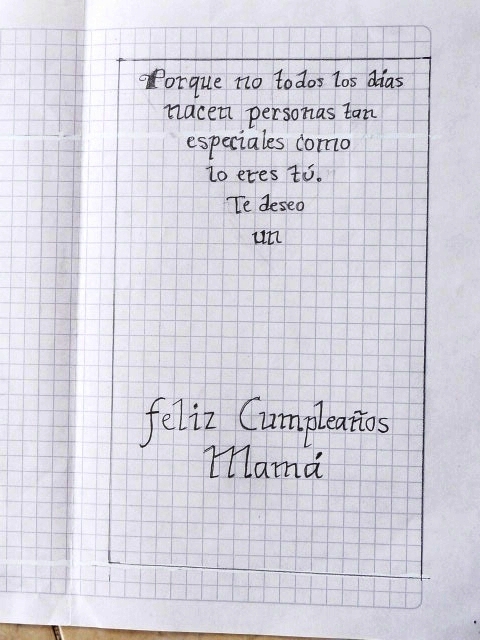 Porque no todos los días
nacen personas tan
especiales como
lo eres tú.
Te deseo
un
feliz Cumpleaños
Mamá